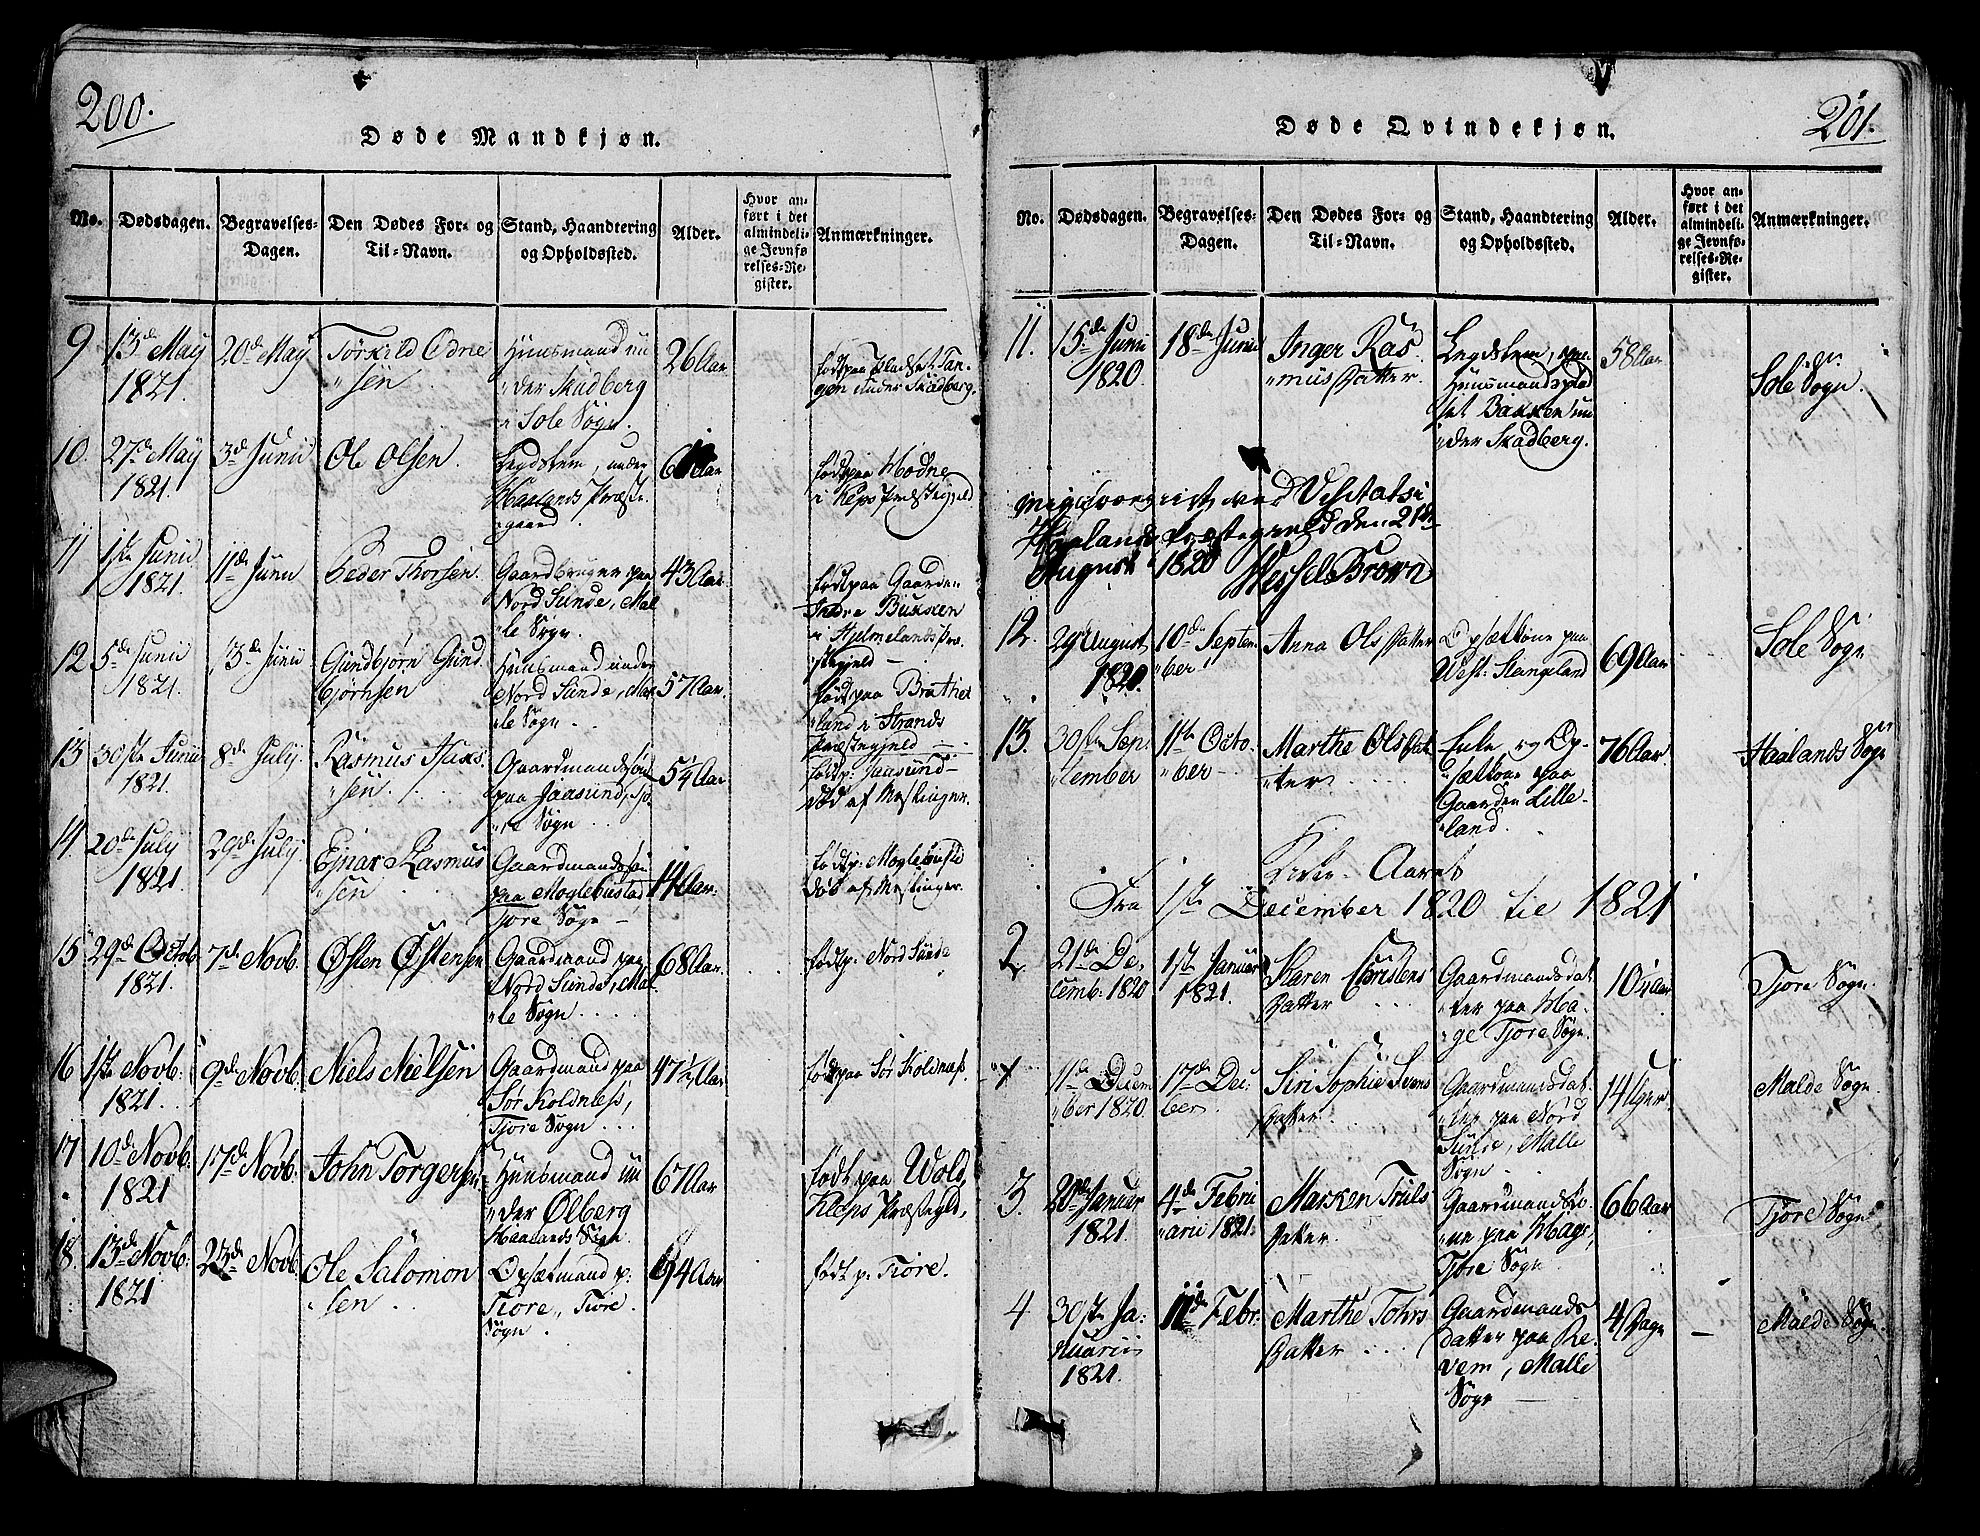 200.
Døde Mandkjøn.
No.
Dødsdagen.
Begravelses-
Dagen.
Den Dødes For- og
Til-Navn.
Stand, Haandtering
og Opholdssted.
Alder.
Hvor an-
ført i det
almindeli-
ge Jevnfø
relses-Re-
gister.
Anmærkninger.
9
13de May
1821.
20de May
Törkild Odne
"sen
Huusmand un
"der Skadberg
i Sole Sogn.
26 Aar
født paa Pladset Tan-
gen under Skadberg.
10.
27de May
1821.
3de Junii
Ole Olsen.
Legdslem, under
Haalands Præste-
gaard.
Aar
født paa Hodne
i Kleps Præstegjeld
11
1ste Junii
1821.
11de Junii
Peder Thorsen.
Gaardbruger paa
Nord Sunde, Mal
"le Sogn.
43 Aar.
født paa Gaarden
Indre Bukken
i Hjelmelands Præ-
stegjeld
12
5de Junii
1821.
13de Junii
Gundbjörn Gund
björnsen
Huusmand under
Nord Sunde, Mal
"le Sogn
57 Aar.
født paa Brathet
land i Strands
Præstegjeld
13
30ste Junii
1821.
8de July.
Rasmus Isaks
"sen.
Gaardmandssön
paa Jaasund, Tjo
"re Sogn
54 Aar
født p: Jaasund
død af Meslinger.
14.
20de July
1821.
29de July.
Ejnar Rasmus
"sen
Gaardmandssön
paa Moglebustad
Tjore Sogn
14 Aar.
født p:
død af Meslinger.
15
29de Octob.
1821.
7de Novb.
Østen Østensen
Gaardmand paa
Nord Sunde, Mal
"le Sogn
68 Aar.
født p: Nord Sunde
16
1ste Novb:
1821.
9de Novb.
Niels Nielsen
Gaardmand paa
Sör Koldness,
Tjore Sogn
47½ Aar
født paa Sör Koldness.
17
10de Novb:
1821
17de Novb.
John Torgersen
Huusmand un
"der Ølberg
Haalands Sogn
67 Aar
født paa Wold,
Kleps Præstegjeld,
18.
13de Novb:
1821
23de Novb.
Ole Salomon
"sen
Opsætmand p:
Tiore, Tiore
Sogn.
Aar
født p: Tiore.
201.
Døde Qvindekjøn.
No.
Dødsdagen.
Begravelses-
Dagen.
Den Dødes For- og
Til-Navn.
Stand, Haandtering
og Opholdssted.
Alder.
Hvor an-
ført i det
almindeli-
ge Jevnfø-
relses-Re-
gister.
Anmærkninger.
11.
15de Junii
1820.
18de Junii
Inger Ras
"mus Datter.
Legdslem, paa
Huusmandsplad
set Bakken un
"der Skadberg.
58 Aar
Sole Sogn.
ved Visitatsi
Haalands Præstegjeld den 21de
August 1820 Wessel Brown
12.
29de August
1820.
10de Septem
"ber
Anna Ols Datter
Opsætkone paa
West: Stangeland
69 Aar
Sole Sogn
13.
30ste Sep-
"tember
11te Octo-
"ber
Marthe Ols Dat
"ter
Enke og Op-
"sætkone paa
Gaarden Lille-
"land.
76 Aar.
Haalands Sogn
Kirke-Aaret
Fra 1ste December 1820 til 1821
2.
21de De-
cemb: 1820
1ste Januar
1821.
Karen Christens
Datter
Gaardmandsdat
"ter paa Ha-
"ge Tjore Sogn.
10¼ Aar
Tjore Sogn.
11de Decem
"ber 1820.
17de De-
ber.
Siri Sophie Svens
Datter
Gaardmandsdat
"ter paa Nord
Sunde, Malle
Sogn
14 Uger.
Malde Sogn.
3.
20de Januar
1821.
4de Febru
"arii 1821.
Marken Truls
Datter.
Gaardmandsko
"ne paa Hage,
Tjore Sogn
66 Aar
Tjore Sogn
4
30ste Ja-
nuarii
1821.
11de Febr.
Marthe Tohrs
Datter
Gaardmands
datter paa Re-
vem, Malle
Sogn
4 Dage
Malde Sogn.